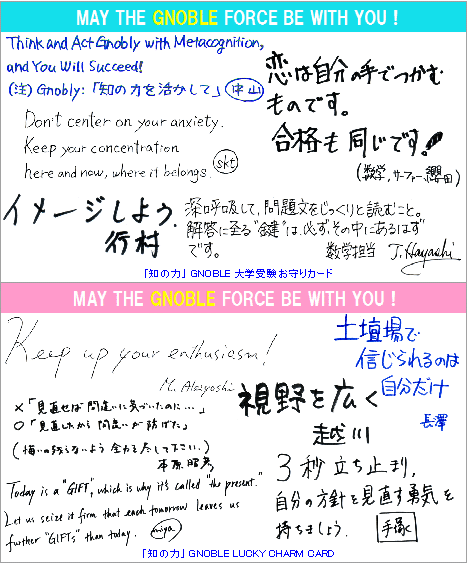 MAY THE GNOBLE FORCE BE WITH YOU !
Think and Act Gnobly with Metacognition,
and You Will Succeed!
(注) Gnobly:「知の力を活かして」 中山
恋は自分の手でつかむ
ものです。
合格も同じです!
(数学,サーファー 櫻田)
Don't center on your anxiety.
Keep your concentration
here and now, where it belongs. skt
イメージしよう.
行村
深呼吸して,問題文をじっくりと読むこと。
解答に至る"鍵"は,必ずその中にあるはず
です。
数学担当 J.Hayashi
「知の力」 GNOBLE 大学受験お守りカード
MAY THE GNOBLE FORCE BE WITH YOU !
Keep up your enthusiasm!
M. Akiyoshi
土壇場で
信じられるのは
自分だけ
長澤
×「見直せば間違いに気づいたのに…」
○「見直したから間違いが防げた」
(悔いの残らないよう全力を尽して下さい.)
視野を広く
越川
Today is a "GIFT", which is why it's called "the present."
Let us seize it firm that each tomorrow leaves us
further "GIFTs" than today. miya
3秒立ち止まり,
自分の方針を見直す勇気を
持ちましょう. 手塚
「知の力」 GNOBLE LUCKY CHARM CARD